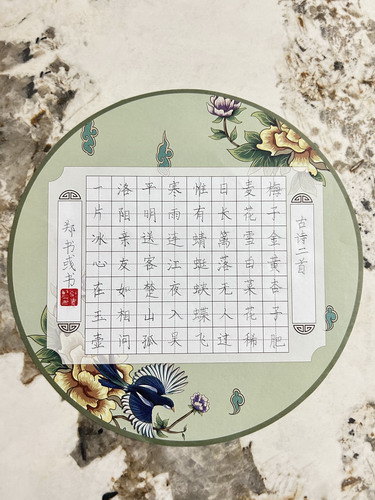 古诗二首
梅子金黄杏子肥
麦花雪白菜花稀
日长篱落无人过
惟有蜻蜓蛱蝶飞
寒雨连江夜入吴
平明送客楚山孤
洛阳亲友如相问
一片冰心在玉壶
郑书彧书